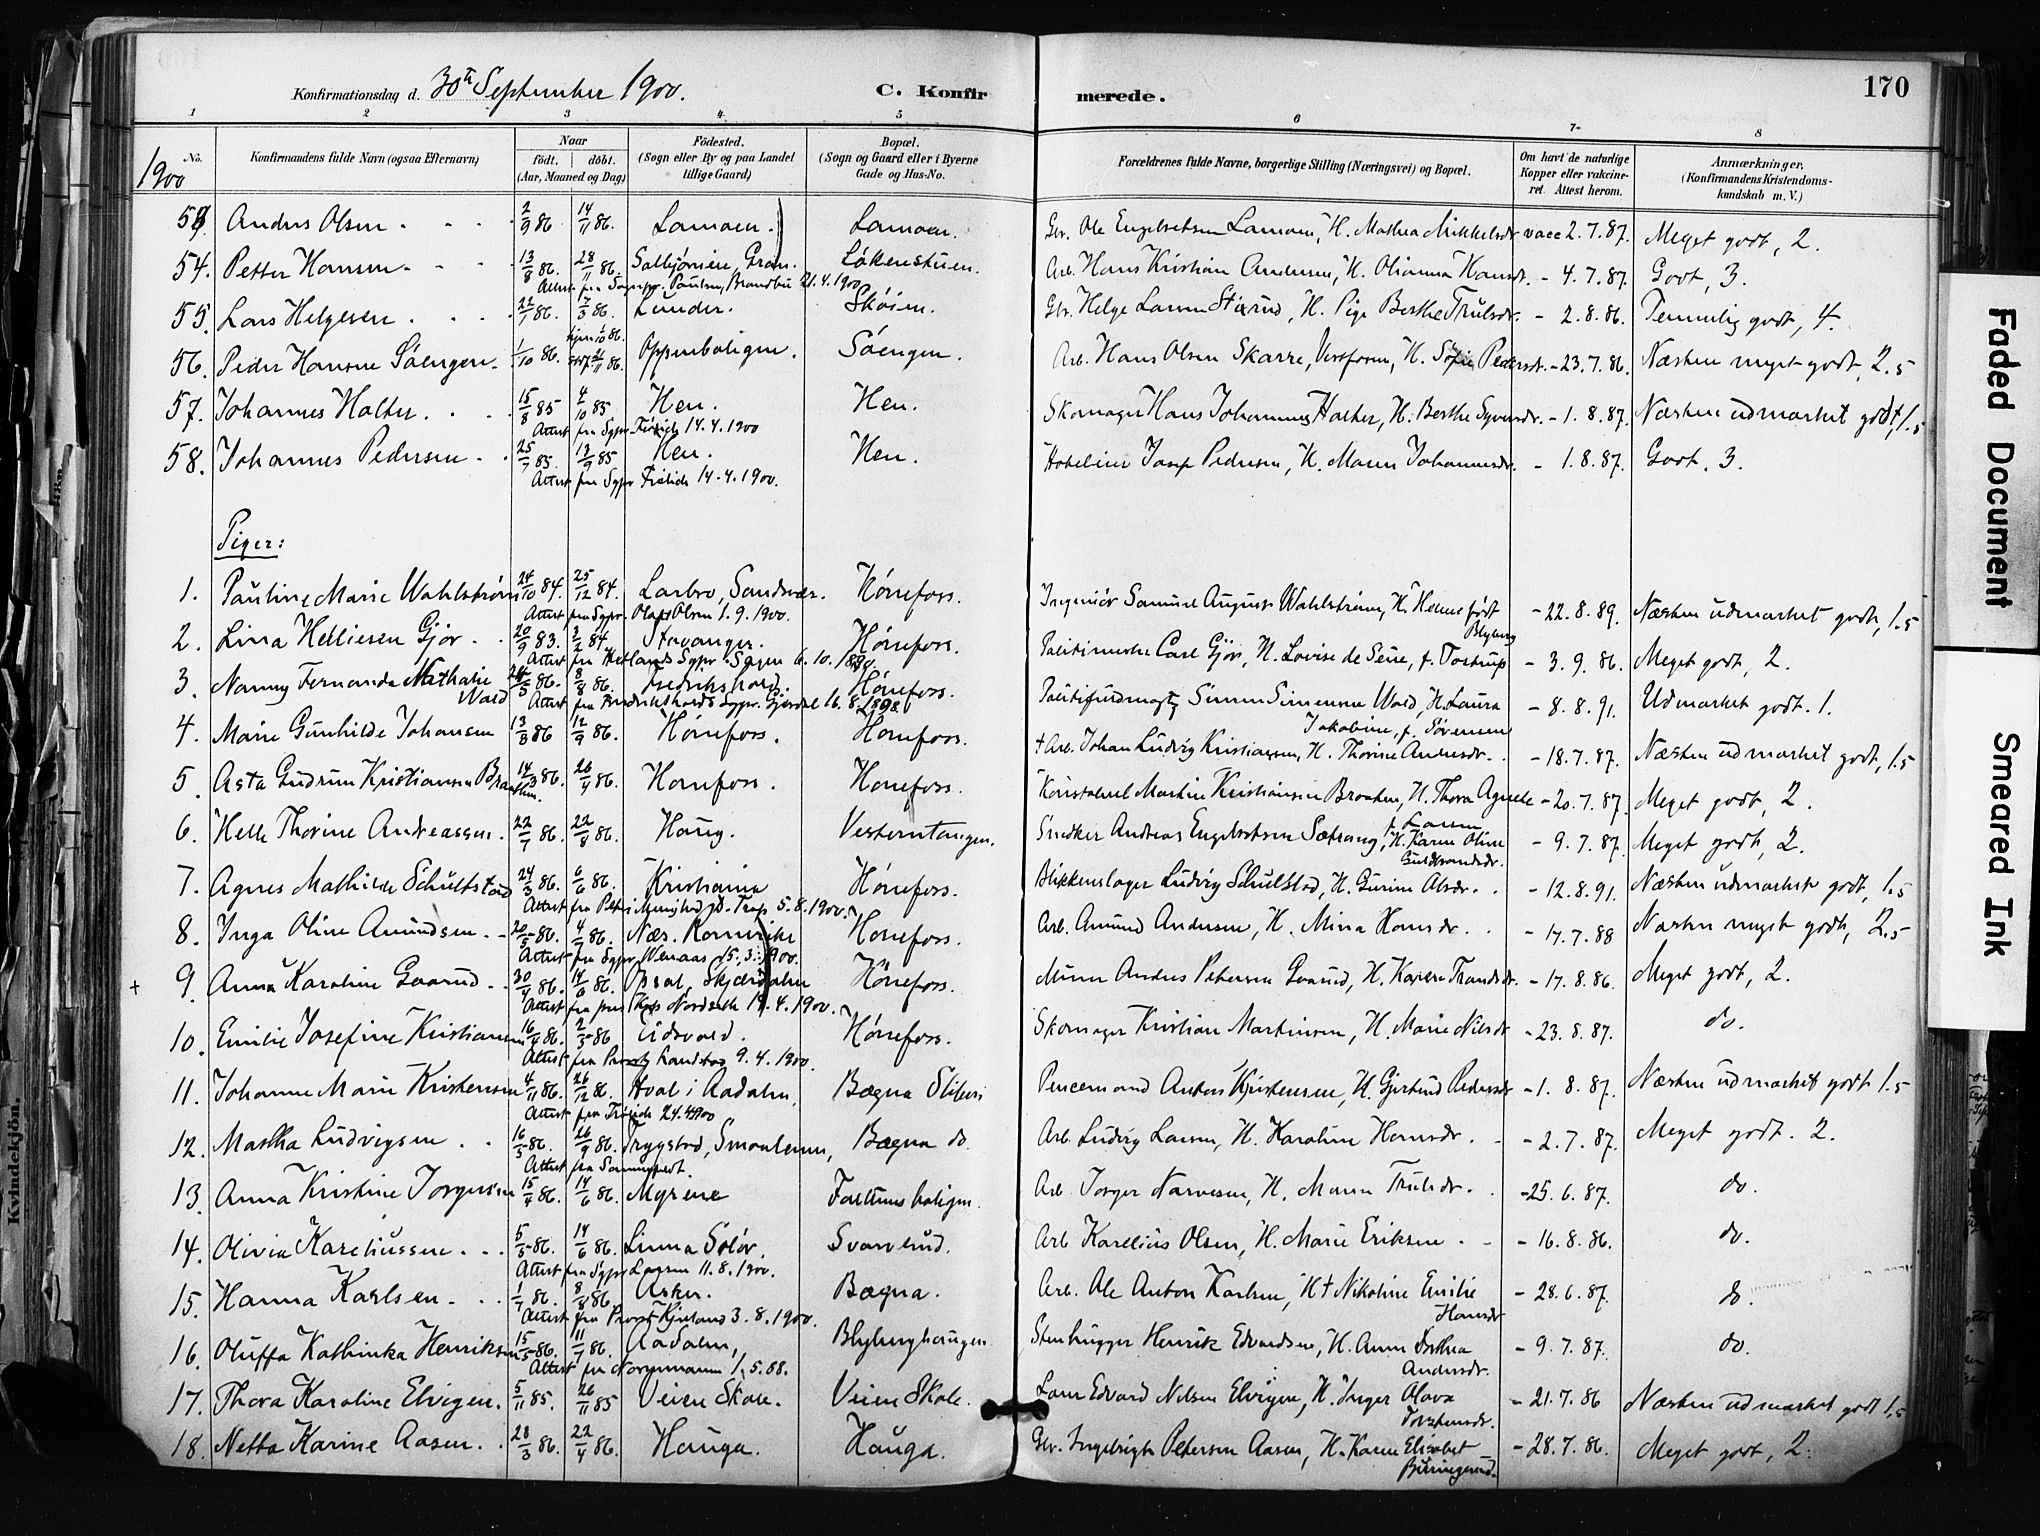 Konfirmationsdag d. 30te September 1900. C. Konfirmerede. 170
1 2 3 4 5 6 7 8
1900 No. Konfirmandens fulde Navn (ogsaa Efternavn) Naar født. døbt. (Aar, Maaned og Dag) Fødested. (Sogn eller By og paa Landet tillige Gaard) Bopæl. (Sogn og Gaard eller i Byerne Gade og Hus-No. Forældrenes fulde Navne, borgerlige Stilling (Næringsvei) og Bopæl. Om havt de naturlige Kopper eller vakcineret. Attest herom. Anmærkninger. (Konfirmandens Kristendomskundskab m. V.)
53. Anders Olsen 2/9 86 14/11 86. Lamoen. Lamoen. Gbr. Ole Engebretsen Lamoen, H. Mathea Mikkelsdr. vacc 2.7.87. Meget godt, 2.
54. Petter Hansen 13/8 86. 28/11 86. Gran. Løkenstuen. Arb. Hans Kristian Andersen, H. Olianna Hansdr. - 4.7.87. Godt, 3.
Attest fra Sognepr. Paulsen, Brandbu 21.4.1900
55. Lars Helgesen 22/1 86. 7/3 86. Lunder. Skøien. Gbr. Helge Larsen Stixrud, H. Pige Berthe Trulsdr. - 2.8.86. Temmelig godt, 4.
56. Peder Hansen Søengen 1/10 86. hjem 10 86. 11 86. Oppenboligen. Søengen. Arb. Hans Olsen Skarre, Vestfoven, H. Sofie Pedersdr. - 23.7.86. Næsten meget godt, 2.5
57. Johannes Halter 15/8 85 4/10 85 Hen. Hen. Skomager Hans Johannes Halter, H. Berthe Syversdr. - 1.8.87. Næsten udmærket godt, 1.5
Attest fra Sgpr. Frølich 14.4.1900
58. Johannes Pedersen 25/7 85. 13/9 85 Hen. Hen. Josef Pedersen, H. Maren Johannesdr. - 1.8.87. Godt, 3.
Attest fra Sgpr Frølich 14.4.1900.
Piger:
1. Pauline Marie Wahlstrøm 24/10 84. 25/12 84. Labro, Sandsvær. Hønefoss. Ingeniør Samuel August Wahlstrøm, H. Helene født Blyberg - 22.8.89. Næsten udmærket godt, 1.5
Attest fra Sgpr. Olaf Olsen 1.9.1900.
2. Lina Helliesen Gjør 20/9 83. 3/2 84. Stavanger. Hønefoss. Politimester Carl Gjør, H. Lovise de Seue, f. Tostrup - 3.9.86. Meget godt, 2.
Attest fra Hetlands Sgpr. 6.10.1890.
3. Nanny Fernanda Nathalie Wold 24/5 86. 8/8 86. Fredrikshald. Hønefoss. Politifuldmægtig Simen Simensen Wold, H. Laura Jakobine, f. Sørensen - 8.8.91. Udmærket godt. 1.
Attest fra Fredrikshalds Sgpr. Gjerdal 16.8.1898
4. Marie Gunhilde Johansen 13/8 86 12/9 86. Hønefoss. Hønefoss. † Arb. Johan Ludvig Kristiansen, H. Thorine Andersdr. - 18.7.87. Næsten udmærket godt, 1.5
5. Asta Gudrun Kristiansen Braathen. 14/3 86. 26/4 86. Hønefoss. Hønefoss. Konstabel Martin Kristiansen Braaten, H. Thora Agnete f. Larsen - 20.7.87. Meget godt, 2.
6. Helle Thorine Andreassen 22/7 86. 22/8 86. Haug. Vesterntangen. Snedker Andreas Engebretsen Sætrang, H. Karen Oline Guldbrandsdr. - 9.7.87. Meget godt, 2.
7. Agnes Mathilde Schultstad 24/3 86. 6/6 86. Kristiania Hønefoss. Blikkenslager Ludvig Schulstad, H. Gurine Olsdr. - 12.8.91. Næsten udmærket godt, 1.5
Attest fra Petri Menighed 5.8.1900.
8. Inga Oline Amundsen 20/5 86. 4/7 86. Næs. Romerike Hønefoss. Arb. Amund Andersen, H. Mina Hansdr. - 17.7.88 Næsten meget godt, 2.5
Attest fra Sgpr. Wenaas 15.3.1900.
† 9. Anna Karoline Gvarud 30/4 86. 14/6 86. Opsal, Skjærdalen Hønefoss. Murer Andreas Petersen Gvarud, H. Karen Trondsdr. - 17.8.86. Meget godt, 2.
Attest fra pers. Kap. Nordseth 19.4.1900.
10. Emilie Josefine Kristiansen 16/4 86. 2/5 86 Eidsvold. Hønefoss. Skomager Kristian Martinsen, H. Marie Nilsdr. - 23.8.87. do.
Attest fra Provst Landstad 9.4.1900
11. Johanne Marie Kristensen 4/11 86. 26/12 86. Hval i Aadalen. Bægna Sliberi Anton Kristensen, H. Gjertrud Pedersdr - 1.8.87. Næsten udmærket godt 1.5
Attest fra Frølich 24.4.1900
12. Martha Ludvigsen 16/5 86. 26/9 86. Trygstad, Smaalenene, Bægna do. Arb. Ludvig Larsen, H. Karoline Hansdr. - 2.7.87. Meget godt. 2.
Attest fra
13. Anna Kristine Jorgensen 15/4 86. 14/6 86. Myrene boligen. Arb. Jorger Narvesen, H. Maren Trulsdr. - 25.6.87. do.
14. Olivia Kareliussen 5/5 86. 14/6 86. Linna Solør. Svarverud. Arb. Karelius Olsen, H. Marie Eriksen - 16.8.86. do.
Attest fra Sgpr Larsen 11.8.1900.
15. Hanna Karlsen 1/7 86. 8/8 86. Asker. Bægna. Arb. Ole Anton Karlsen, H † Nikoline Emilie Hansdr - 28.6.87. do.
Attest fra Provst Kjelland 3.8.1900.
16. Oluffa Kathinka Henriksen 15/5 86. 11/7 86. Aadalen, Blyberghaugen Stenhugger Henrik Edvardsen, H. Anne Dorthea Andersdr. - 9.7.87. do.
Attest fra Normann 1.5.88.
17. Thora Karoline Elvigen. 5/11 85. 26/11 85 Veien Skole. Veien Skole. Lærer Edvard Nilsen Elvigen, H. Inger Olava Torstensdr. - 21.7.86 Næsten udmærket godt 1.5
18. Netta Karine Aasen 28/3 86. 22/4 86. Hauga. Hauga. Gbr. Ingebrigt Petersen Aasen, H. Karen Elisabet - 28.7.86. Meget godt, 2.
Kvindekjön.
Faded Document
Smeared Ink